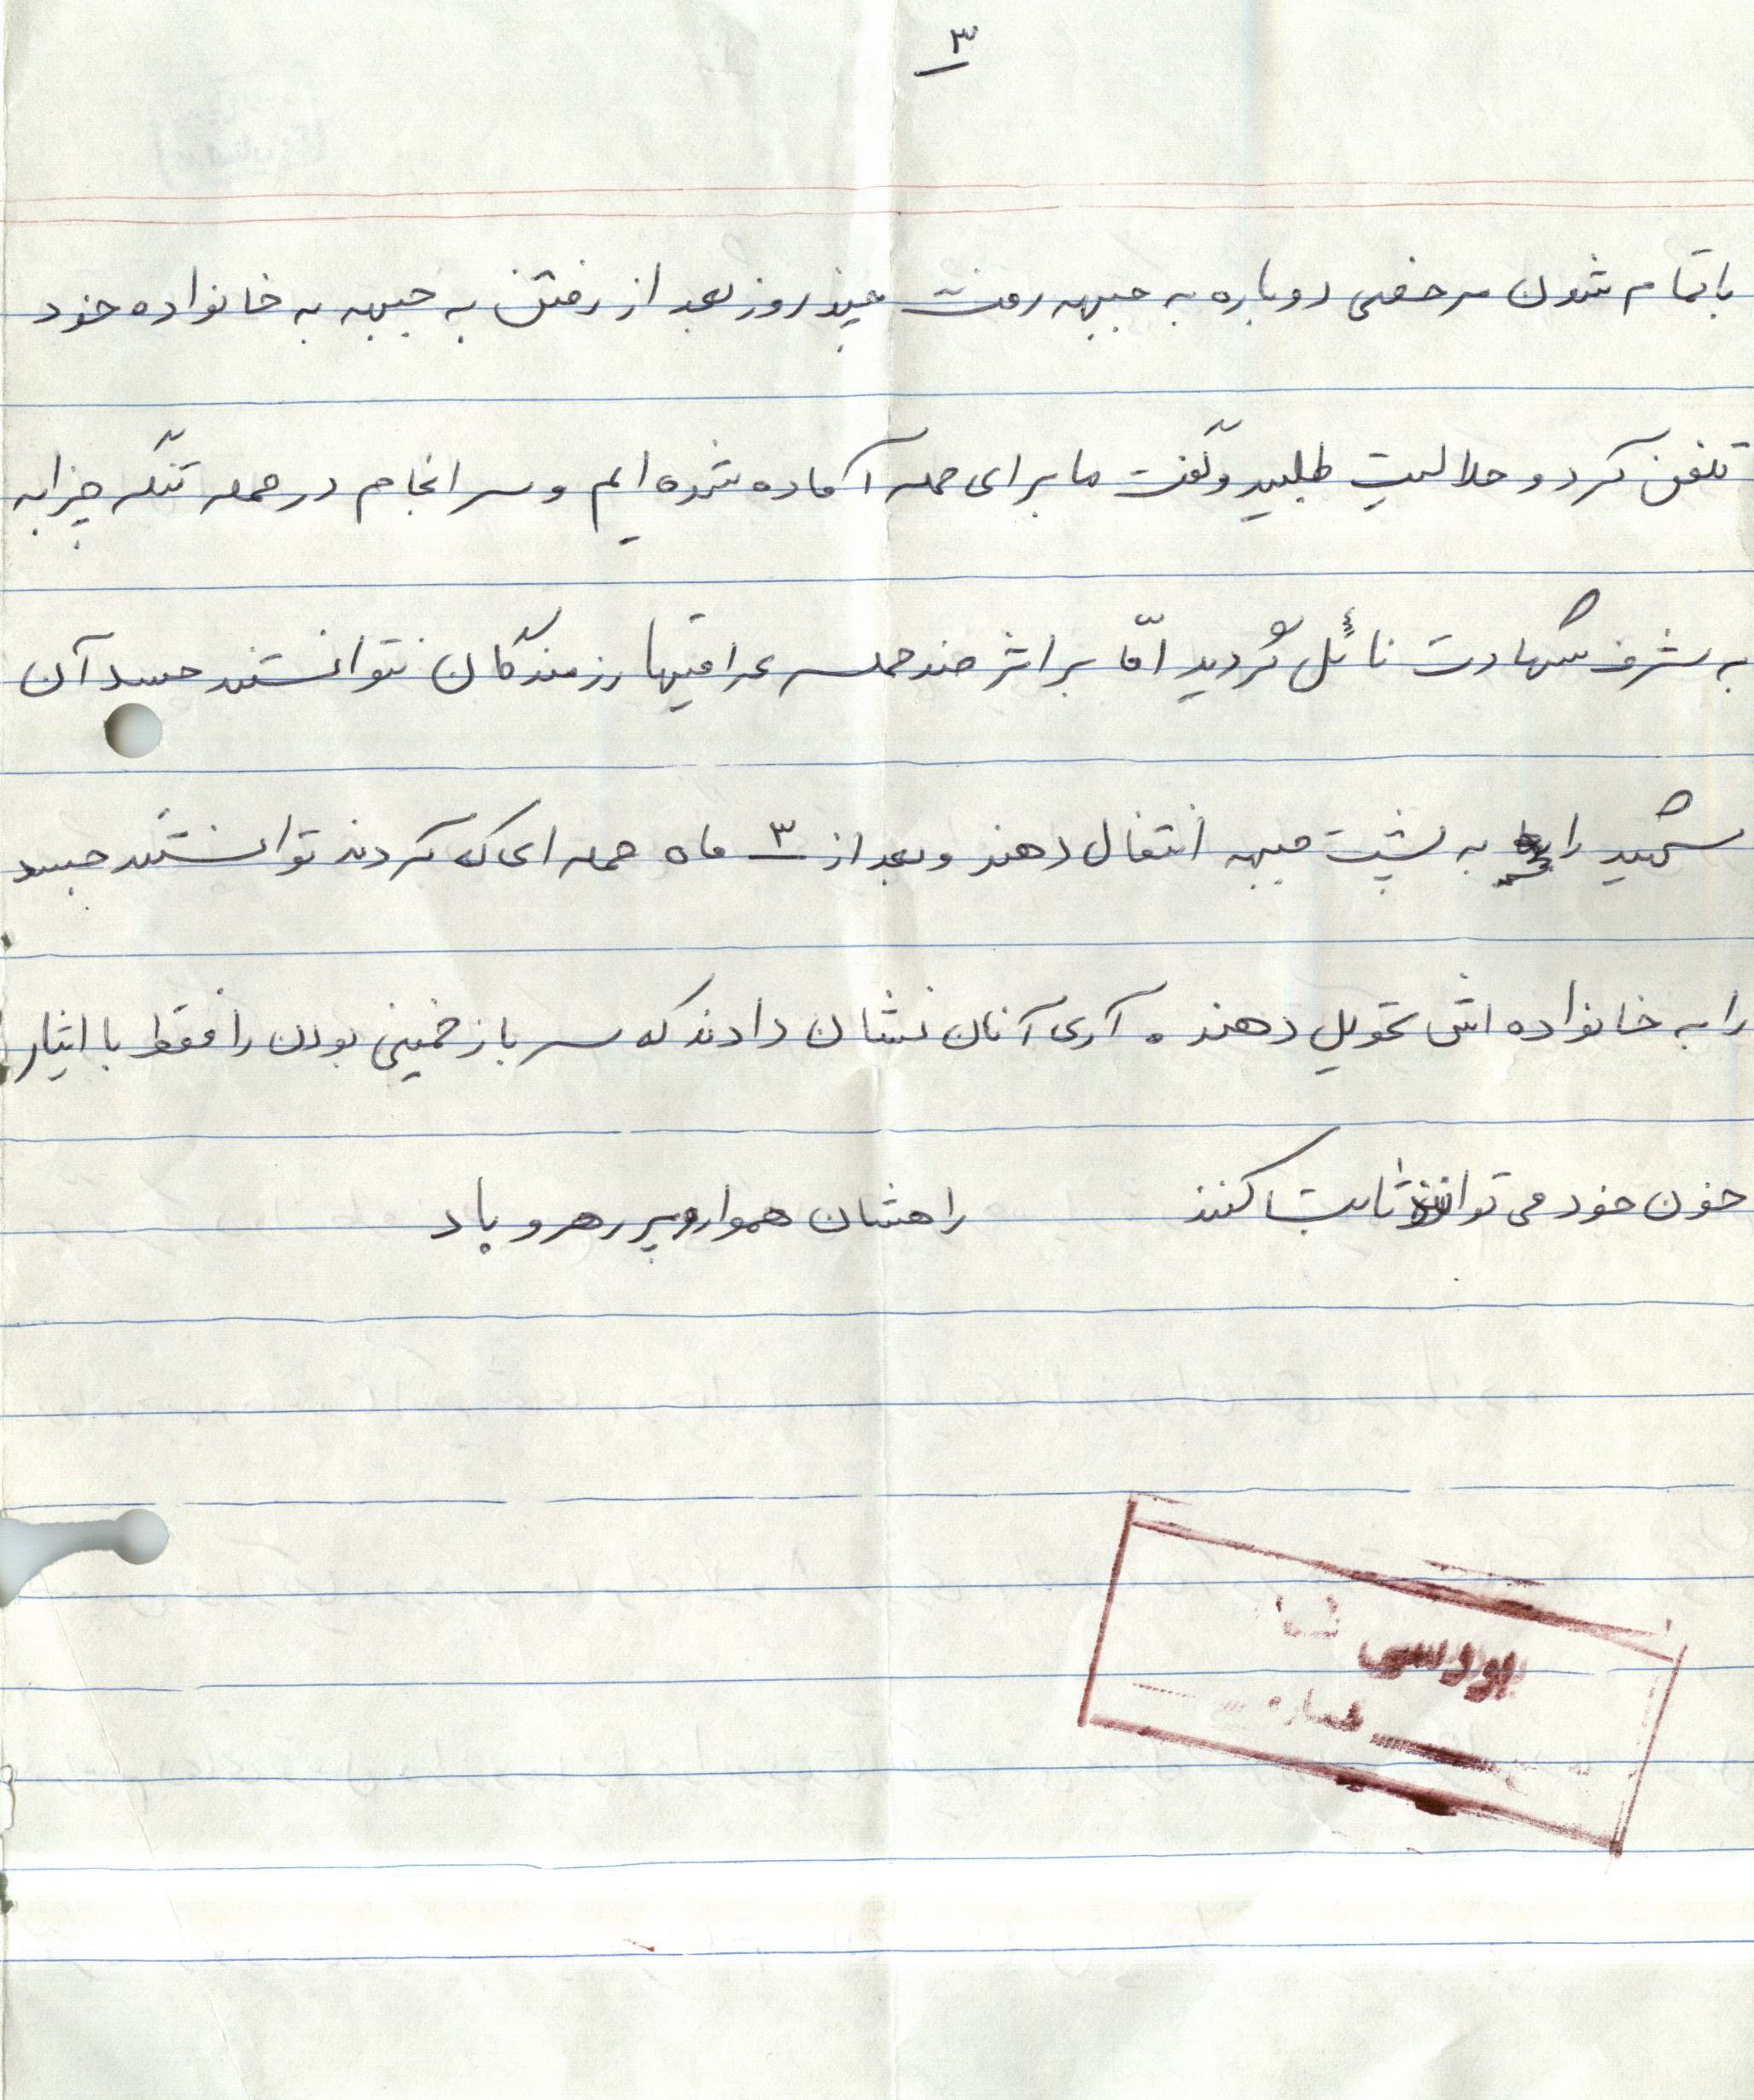 ۳
با تمام شدن مرخصی دوباره به جبهه رفت چند روز بعد از رفتن به جبهه به خانواده خود
تلفن کرد و حلالیت طلبید و گفت ما برای حمله آماده شده ایم و سرانجام در حمله تنگه چزابه
به شرف شهادت نائل گردید امّا بر اثر ضد حمله عراقیها رزمندگان نتوانستند جسد آن
شهید را به پشت جبهه انتقال دهند و بعد از ۳ ماه حمله ای که کردند توانستند جسد
را به خانواده اش تحویل دهند . آری آنان نشان دادند که سرباز خمینی بودن را فقط با ایثار
خون خود می توانند ثابت کنند راهشان همواره پر رهرو باد
بررسی شد
شماره